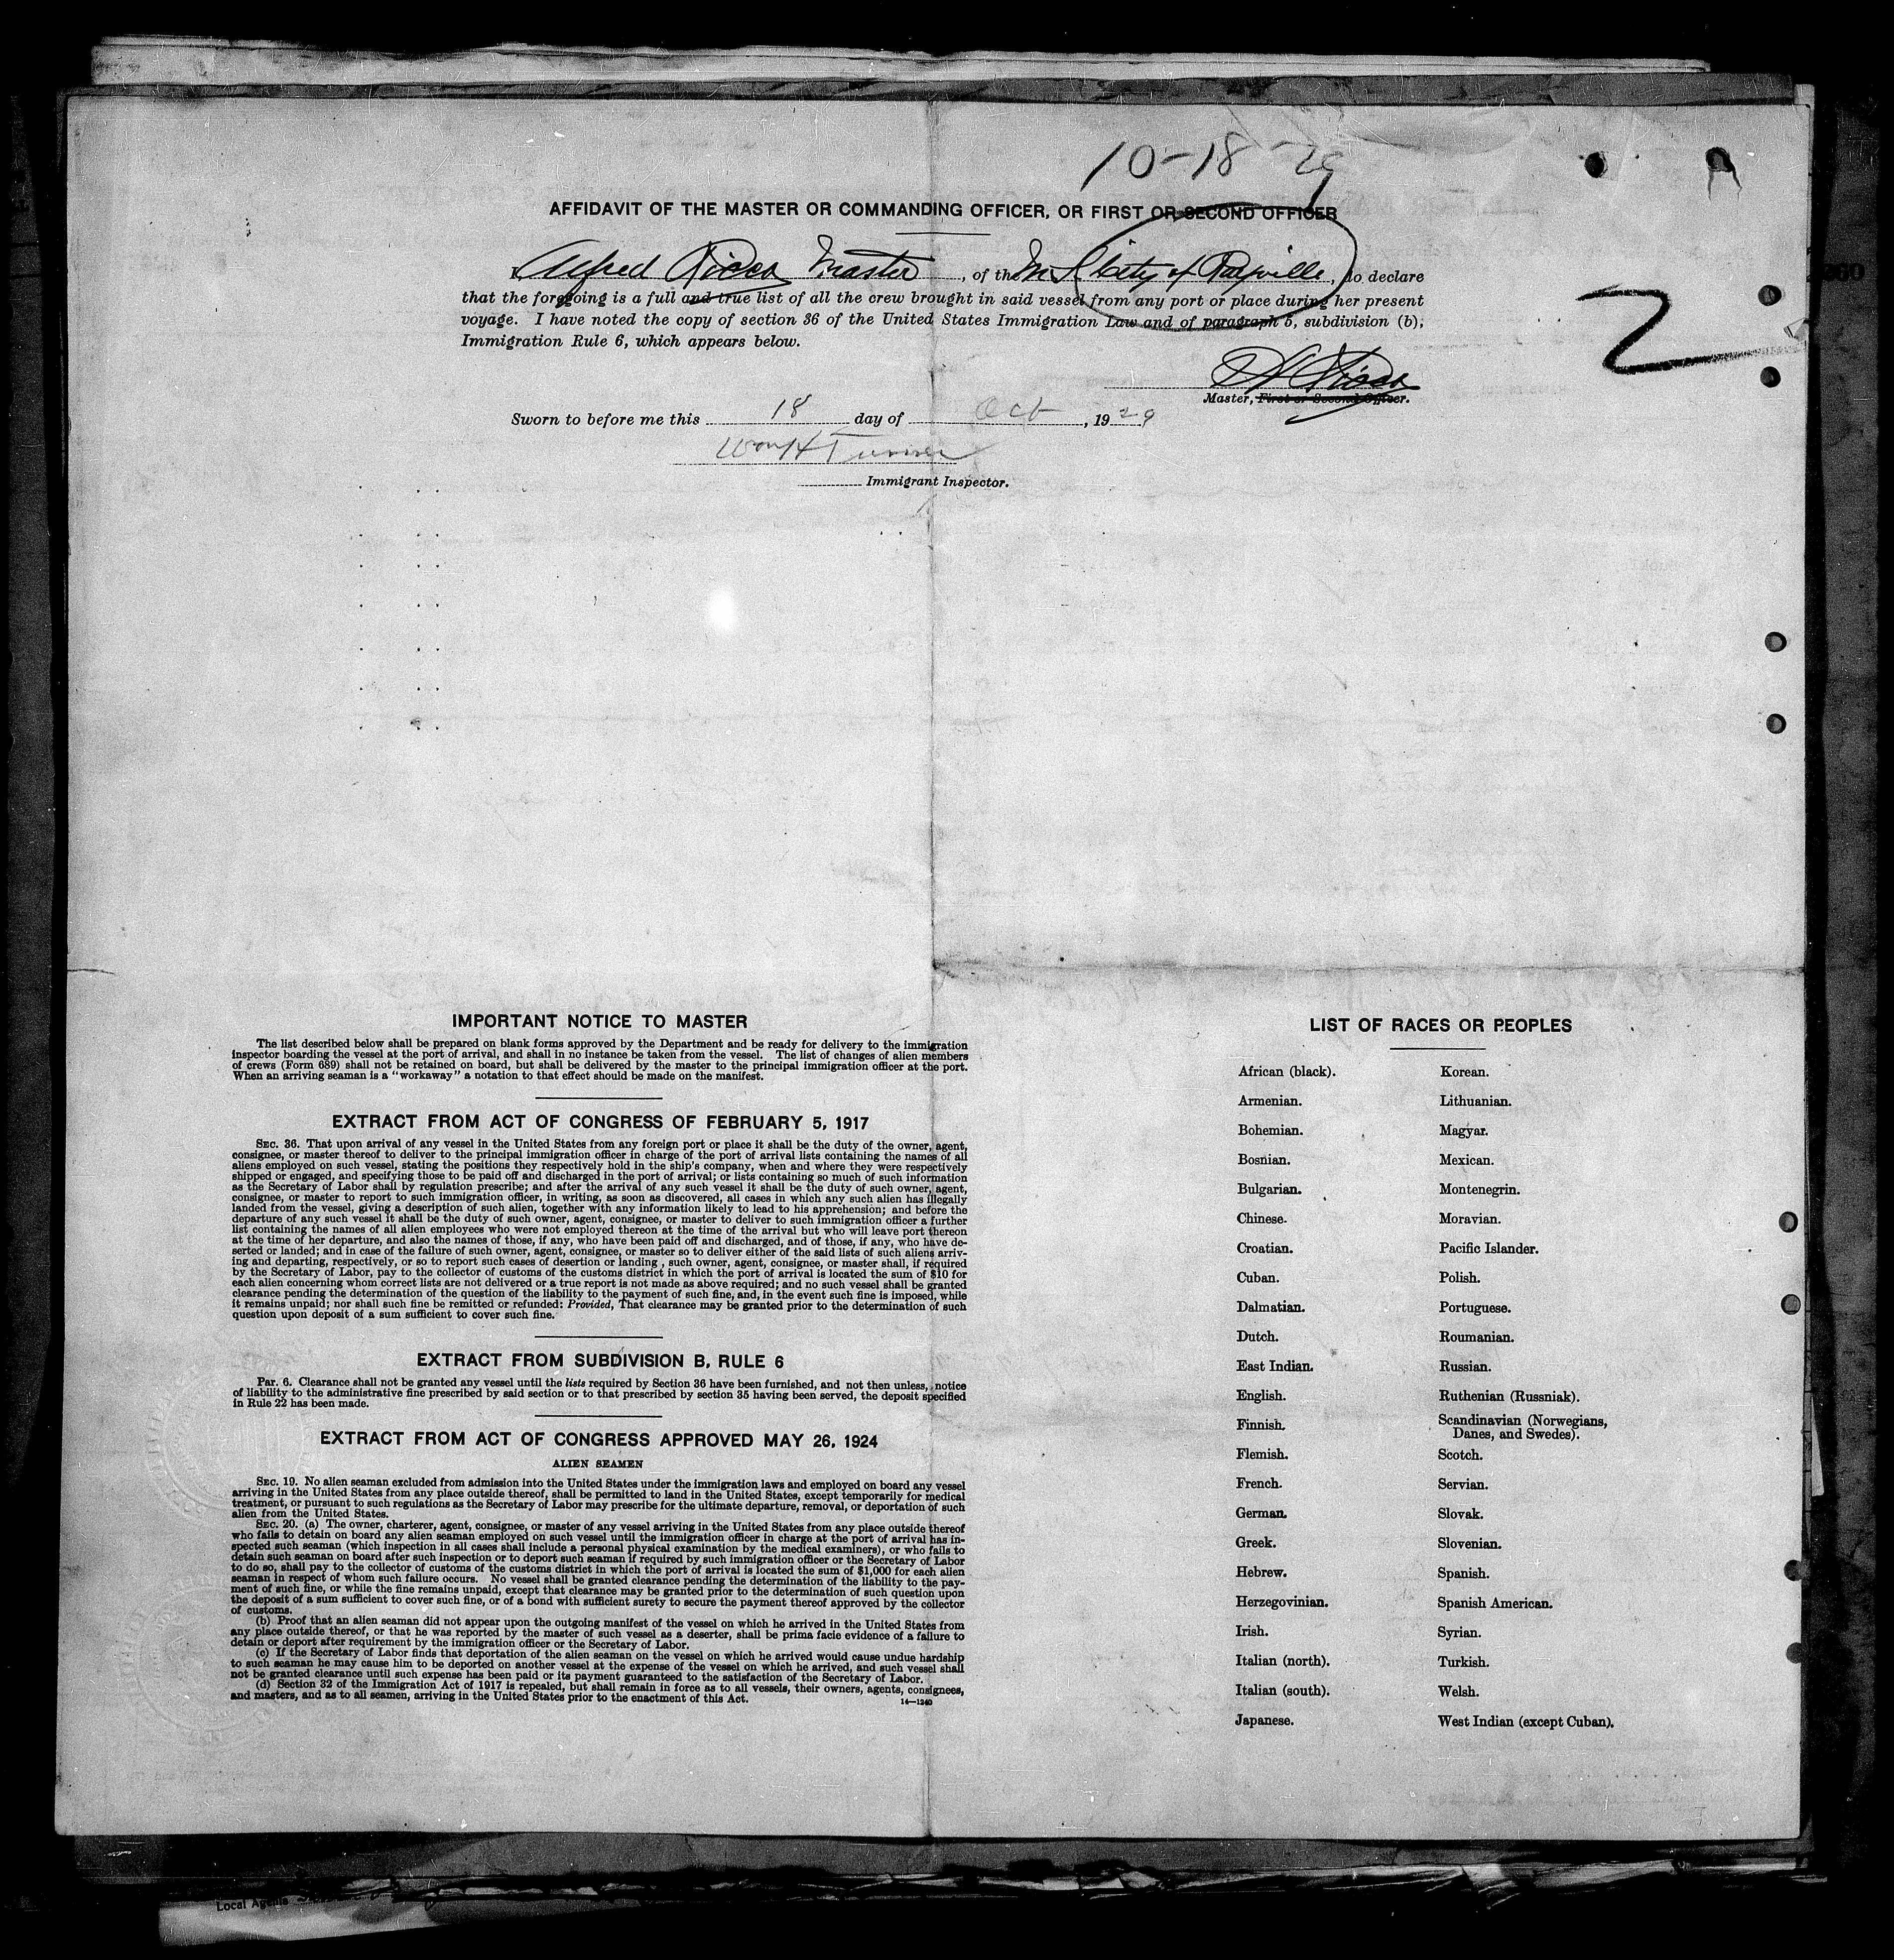 10-18-29
AFFIDAVIT OF THE MASTER OR COMMANDING OFFICER, OR FIRST OR SECOND OFFICER
I, Alfred Master, of the City of Rayville, do declare
that the foregoing is a full and true list of all the crew brought in said vessel from any port or place during her present
voyage. I have noted the copy of section 36 of the United States Immigration Law and of paragraph 5, subdivision (b),
Immigration Rule 6, which appears below.
2
Master, First or Second Officer.
Sworn to before me this 18 day of Oct, 1929
Wm H Turner
Immigrant Inspector.
IMPORTANT NOTICE TO MASTER
The list described below shall be prepared on blank forms approved by the Department and be ready for delivery to the immigration
inspector boarding the vessel at the port of arrival, and shall in no instance be taken from the vessel. The list of changes of alien members
of crews (Form 689) shall not be retained on board, but shall be delivered by the master to the principal immigration officer at the port.
When an arriving seaman is a "workaway" a notation to that effect should be made on the manifest.
EXTRACT FROM ACT OF CONGRESS OF FEBRUARY 5, 1917
SEC. 36. That upon arrival of any vessel in the United States from any foreign port or place it shall be the duty of the owner, agent,
consignee, or master thereof to deliver to the principal immigration officer in charge of the port of arrival lists containing the names of all
aliens employed on such vessel, stating the positions they respectively hold in the ship's company, when and where they were respectively
shipped or engaged, and specifying those to be paid off and discharged in the port of arrival; or lists containing so much of such information
as the Secretary of Labor shall by regulation prescribe; and after the arrival of any such vessel it shall be the duty of such owner, agent,
consignee, or master to report to such immigration officer, in writing, as soon as discovered, all cases in which any such alien has illegally
landed from the vessel, giving a description of such alien, together with any information likely to lead to his apprehension; and before the
departure of any such vessel it shall be the duty of such owner, agent, consignee, or master to deliver to such immigration officer a further
list containing the names of all alien employees who were not employed thereon at the time of the arrival but who will leave port thereon
at the time of her departure, and also the names of those, if any, who have been paid off and discharged, and of those, if any, who have de-
serted or landed; and in case of the failure of such owner, agent, consignee, or master so to deliver either of the said lists of such aliens arriv-
ing and departing, respectively, or so to report such cases of desertion or landing , such owner, agent, consignee, or master shall, if required
by the Secretary of Labor, pay to the collector of customs of the customs district in which the port of arrival is located the sum of $10 for
each alien concerning whom correct lists are not delivered or a true report is not made as above required; and no such vessel shall be granted
clearance pending the determination of the question of the liability to the payment of such fine, and, in the event such fine is imposed, while
it remains unpaid; nor shall such fine be remitted or refunded: Provided, That clearance may be granted prior to the determination of such
question upon deposit of a sum sufficient to cover such fine.
EXTRACT FROM SUBDIVISION B, RULE 6
Par. 6. Clearance shall not be granted any vessel until the lists required by Section 36 have been furnished, and not then unless, notice
of liability to the administrative fine prescribed by said section or to that prescribed by section 35 having been served, the deposit specified
in Rule 22 has been made.
EXTRACT FROM ACT OF CONGRESS APPROVED MAY 26, 1924
ALIEN SEAMEN
SEC. 19. No alien seaman excluded from admission into the United States under the immigration laws and employed on board any vessel
arriving in the United States from any place outside thereof, shall be permitted to land in the United States, except temporarily for medical
treatment, or pursuant to such regulations as the Secretary of Labor may prescribe for the ultimate departure, removal, or deportation of such
alien from the United States.
SEC. 20. (a) The owner, charterer, agent, consignee, or master of any vessel arriving in the United States from any place outside thereof
who fails to detain on board any alien seaman employed on such vessel until the immigration officer in charge at the port of arrival has in-
spected such seaman (which inspection in all cases shall include a personal physical examination by the medical examiners), or who fails to
detain such seaman on board after such inspection or to deport such seaman if required by such immigration officer or the Secretary of Labor
to do so, shall pay to the collector of customs of the customs district in which the port of arrival is located the sum of $1,000 for each alien
seaman in respect of whom such failure occurs. No vessel shall be granted clearance pending the determination of the liability to the pay-
ment of such fine, or while the fine remains unpaid, except that clearance may be granted prior to the determination of such question upon
the deposit of a sum sufficient to cover such fine, or of a bond with sufficient surety to secure the payment thereof approved by the collector
of customs.
(b) Proof that an alien seaman did not appear upon the outgoing manifest of the vessel on which he arrived in the United States from
any place outside thereof, or that he was reported by the master of such vessel as a deserter, shall be prima facie evidence of a failure to
detain or deport after requirement by the immigration officer or the Secretary of Labor.
(c) If the Secretary of Labor finds that deportation of the alien seaman on the vessel on which he arrived would cause undue hardship
to such seaman he may cause him to be deported on another vessel at the expense of the vessel on which he arrived, and such vessel shall
not be granted clearance until such expense has been paid or its payment guaranteed to the satisfaction of the Secretary of Labor.
(d) Section 32 of the Immigration Act of 1917 is repealed, but shall remain in force as to all vessels, their owners, agents, consignees,
and masters, and as to all seamen, arriving in the United States prior to the enactment of this Act.
14—1240
LIST OF RACES OR PEOPLES
African (black). Korean.
Armenian. Lithuanian.
Bohemian. Magyar.
Bosnian. Mexican.
Bulgarian. Montenegrin.
Chinese. Moravian.
Croatian. Pacific Islander.
Cuban. Polish.
Dalmatian. Portuguese.
Dutch. Roumanian.
East Indian. Russian.
English. Ruthenian (Russniak).
Finnish. Scandinavian (Norwegians,
Danes, and Swedes).
Flemish. Scotch.
French. Servian.
German. Slovak.
Greek. Slovenian.
Hebrew. Spanish.
Herzegovinian. Spanish American.
Irish. Syrian.
Italian (north). Turkish.
Italian (south). Welsh.
Japanese. West Indian (except Cuban).
Local Agents